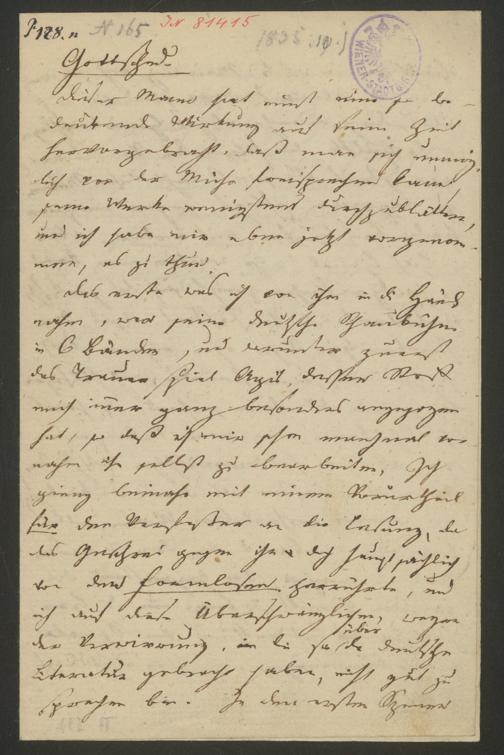 P 128. n
N 165
JN 81415
1835
WIENER STADT
Gottsched
Dieser Mann hat einst eine so be-
deutende Wirkung auf seine Zeit
hervorgebracht, daß man sich unmög-
lich von der Mühe freisprechen kann
seine Werke wenigstens durchzublättern,
und ich habe mir eben jetzt vorgenom-
men, es zu thun.
Das erste was ich von ihm in die Hände
nahm, war seine deutsche Schaubühne
in 6 Bänden, und darunter zuerst
das Trauerspiel Agis, dessen Stoff
mich immer ganz besonders angezogen
hat, so daß ich mir schon manchmal vor-
nahm ihn selbst zu bearbeiten. Ich
gieng beinahe mit einem Vorurtheil
für den Verfasser an die Lesung, da
das Geschrei gegen ihn doch hauptsächlich
von den formlosen herrührte, und
ich auf diese Überschwänglichen, wegen
der Verwirrung, die sie in die
über
deutsche
Literatur gebracht haben, nicht gut zu
sprechen bin. In den ersten Szenen